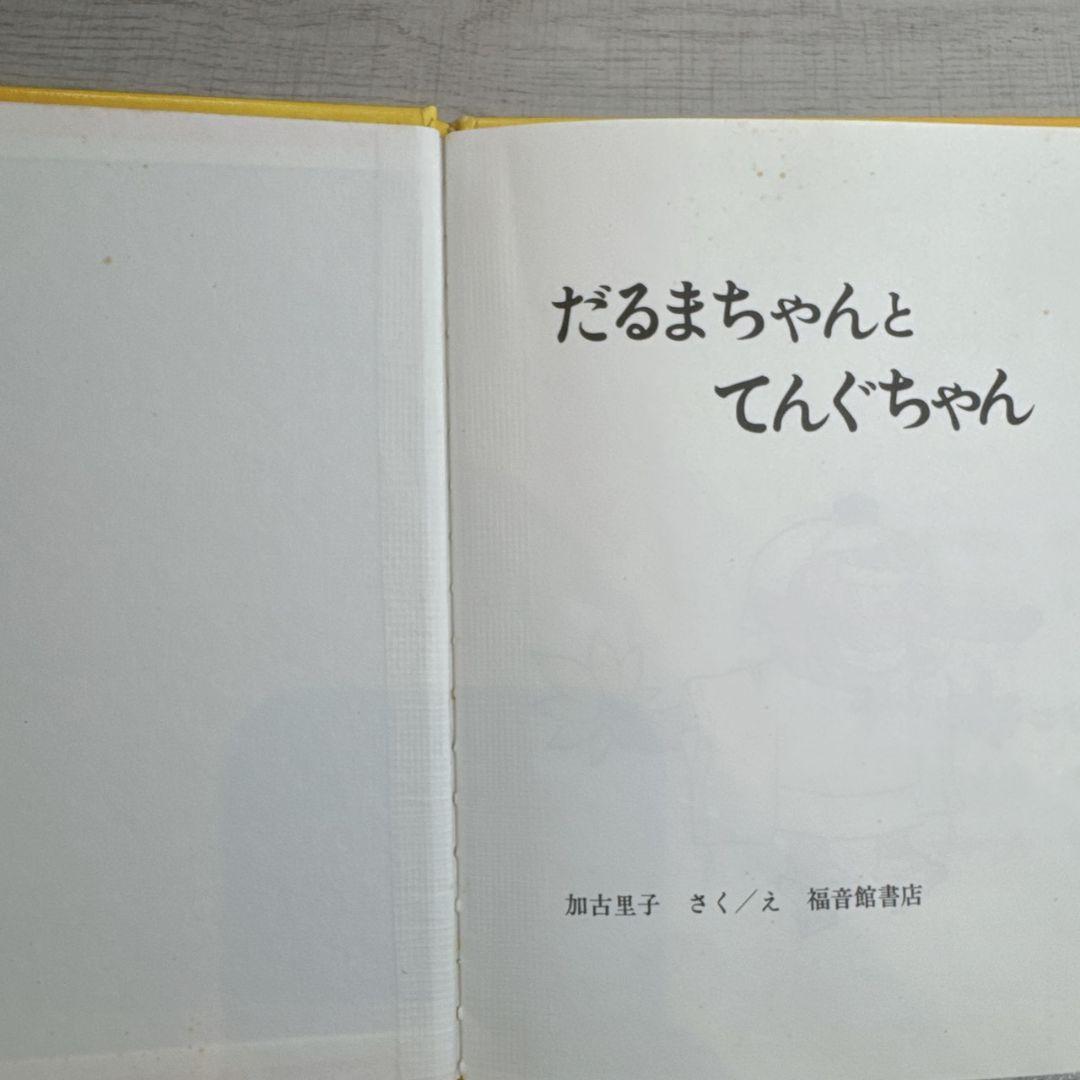 だるまちゃんと
てんぐちゃん
加古里子　さく／え　福音館書店